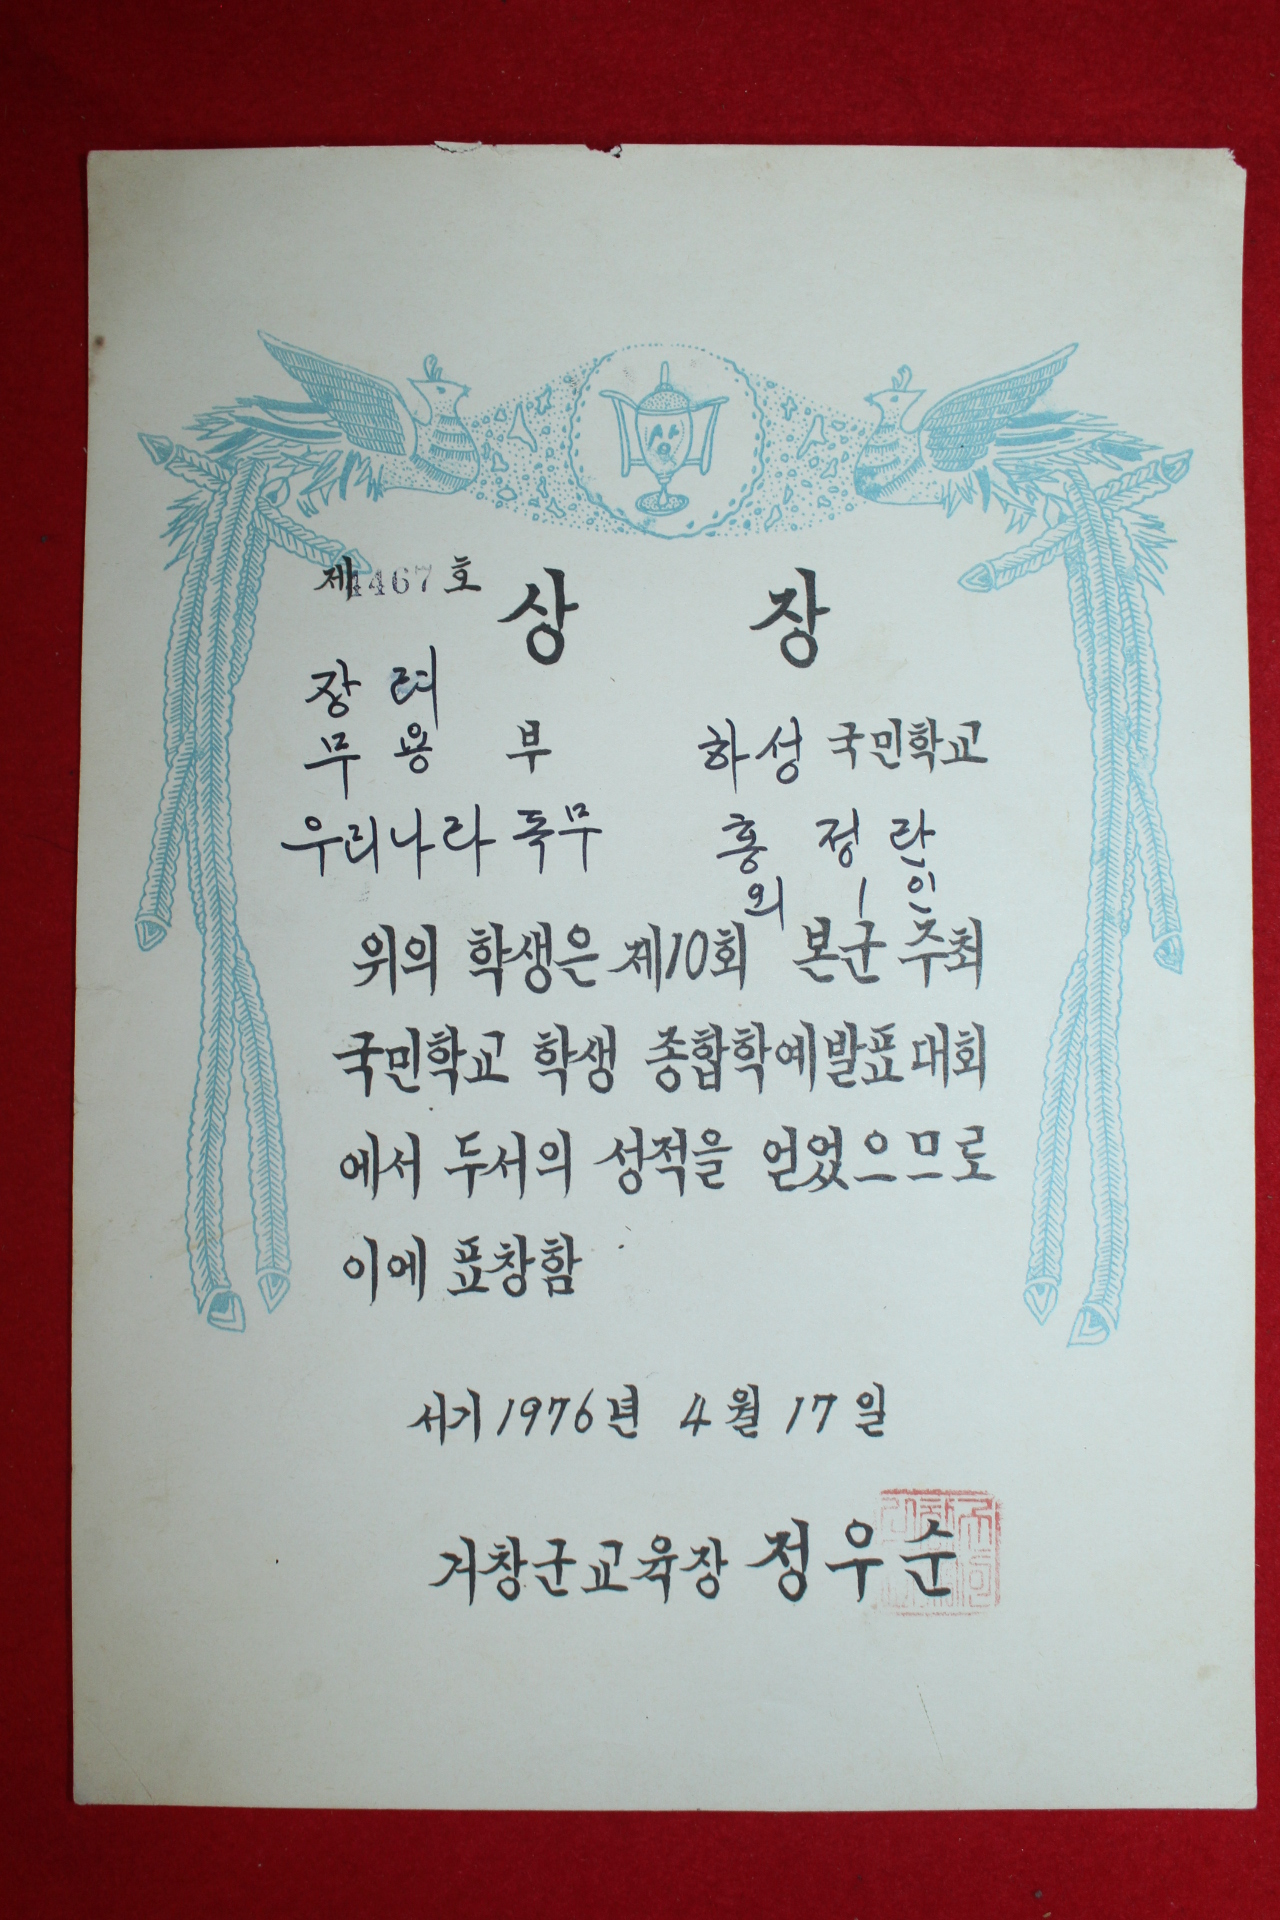 제4467호
상 장
장려
무용부
하성 국민학교
우리나라 독무
홍정란
외 1인
위의 학생은 제10회 본군 주최
국민학교 학생 종합학예발표대회
에서 두서의 성적을 얻었으므로
이에 표창함
서기 1976년 4월 17일
거창군교육장 정우순